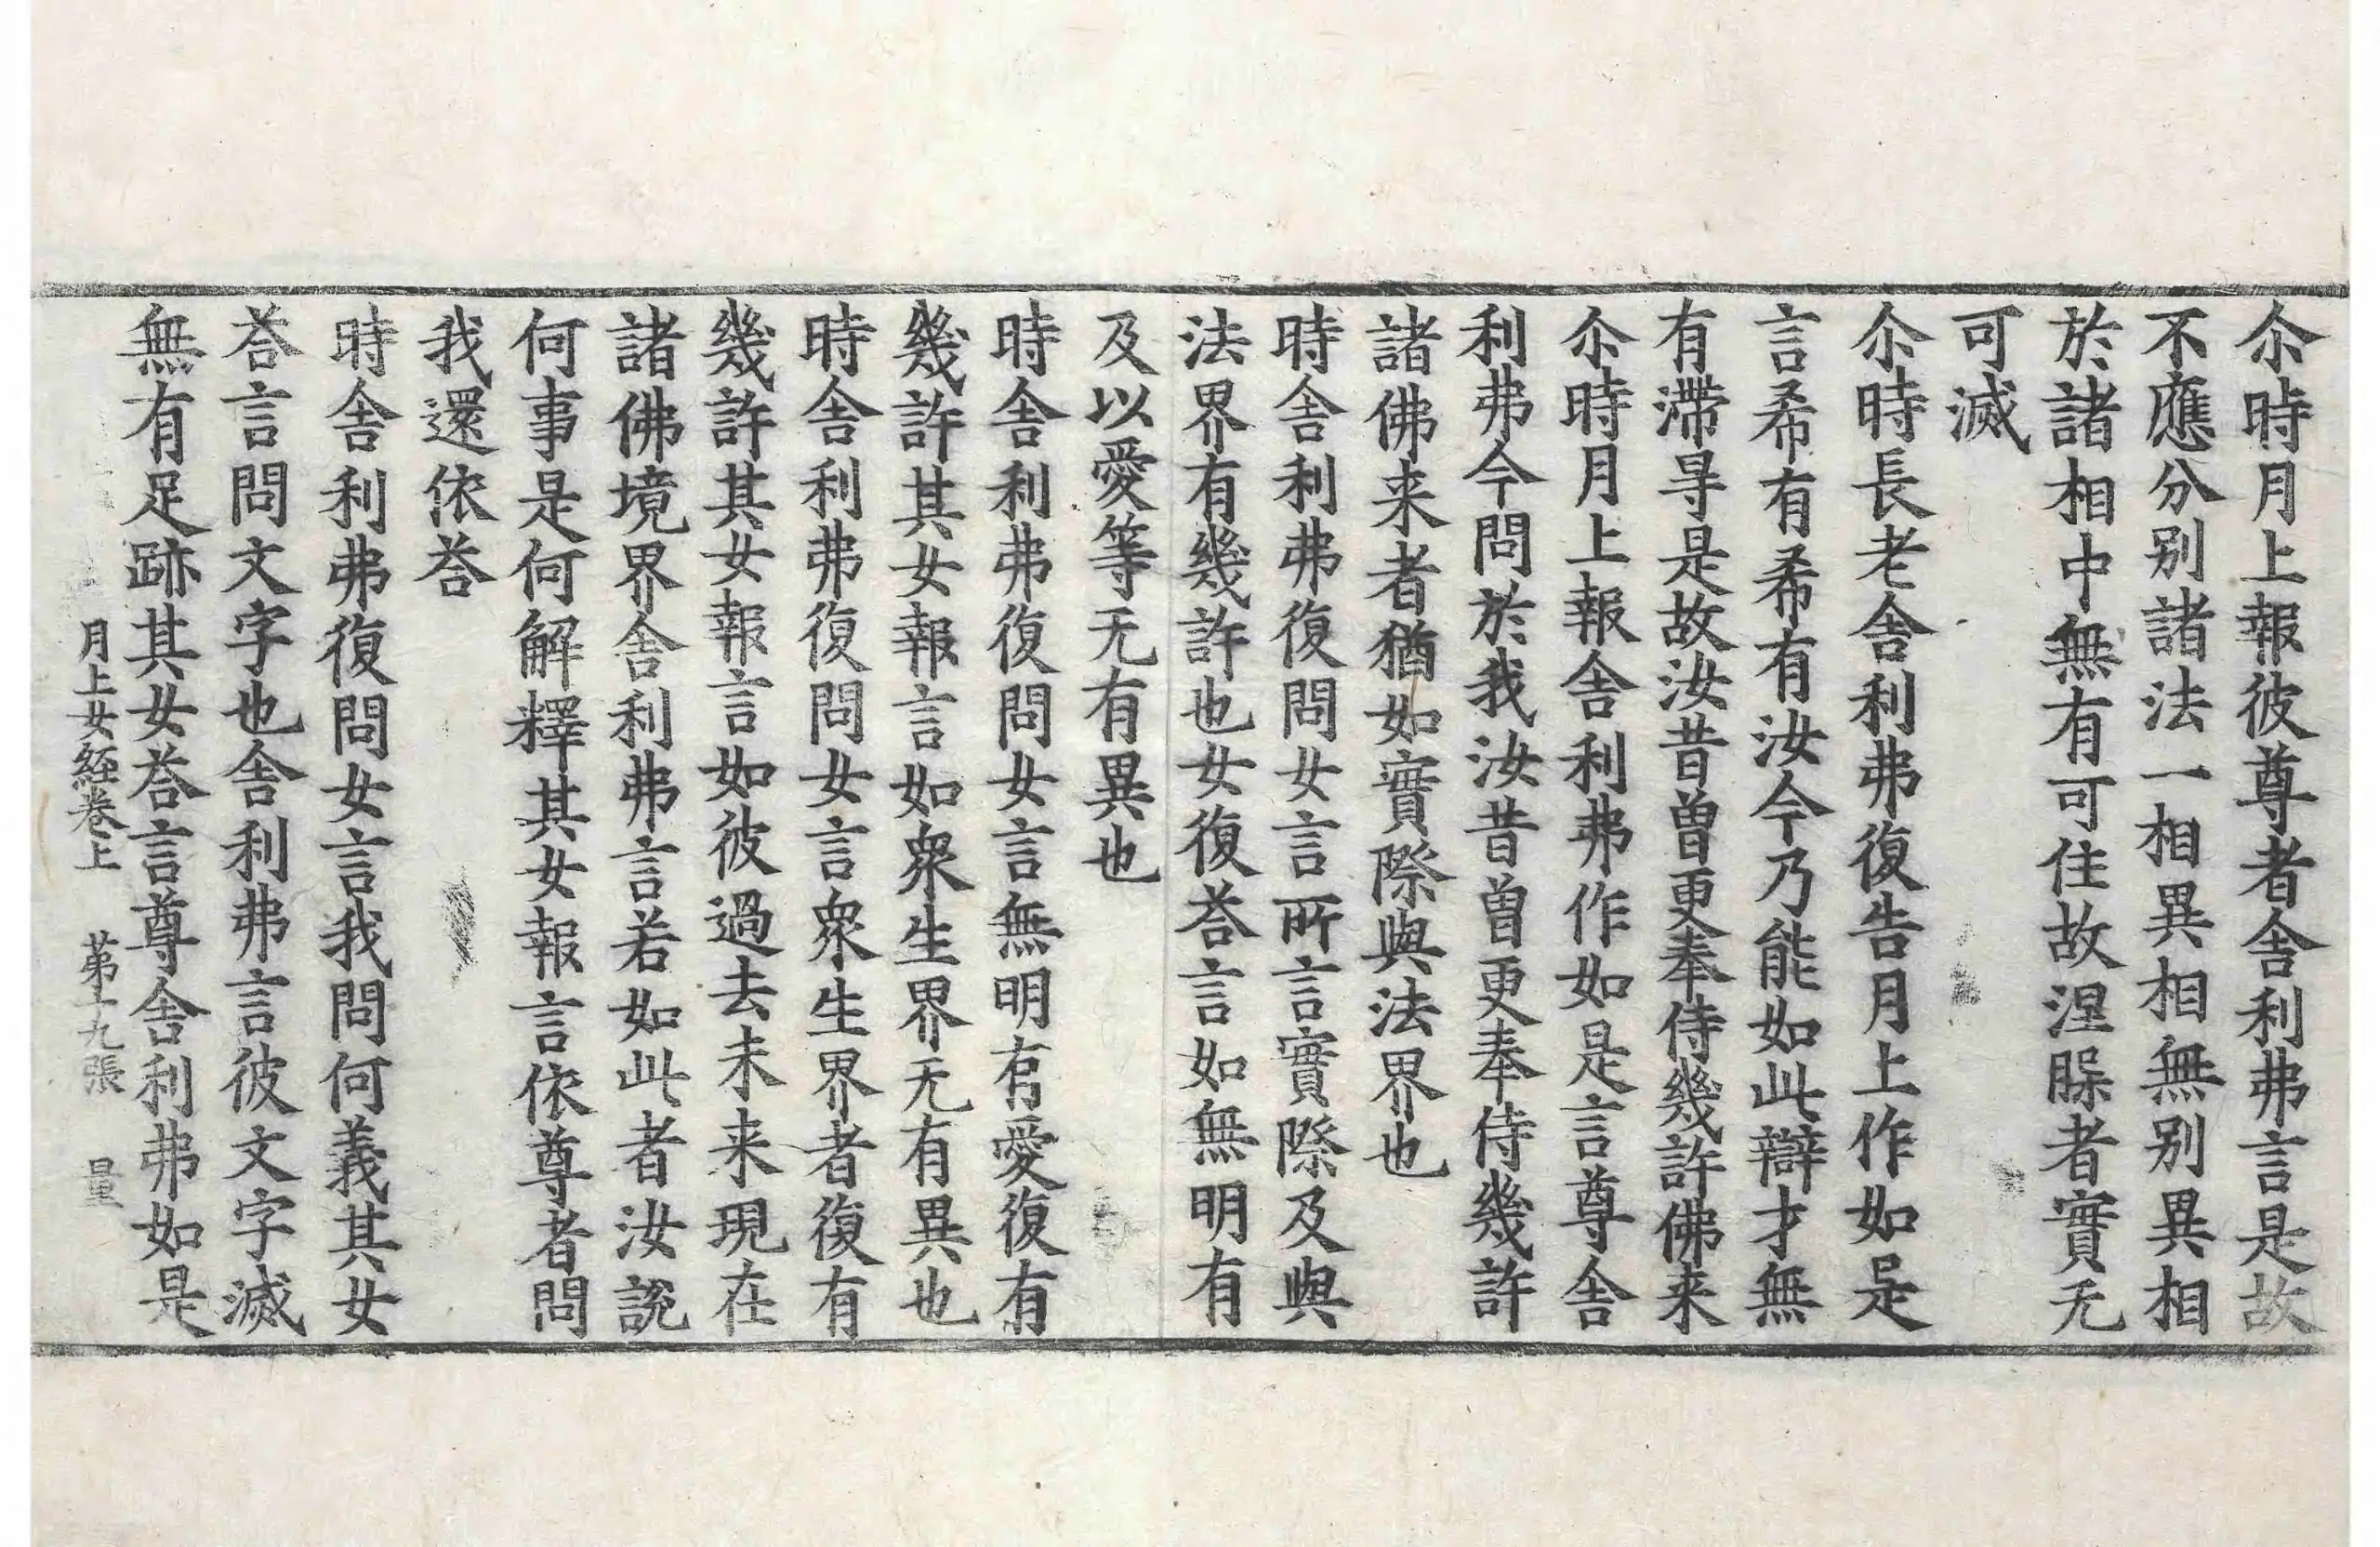 尒時月上報彼尊者舍利弗言是故
不應分别諸法一相異相無别異相
於諸相中無有可住故涅槃者實无
可滅
尒時長老舍利弗復告月上作如是
言希有希有汝今乃能如此辯才無
有滯㝵是故汝昔曾更奉侍幾許佛来
尒時月上報舍利弗作如是言尊舍
利弗今問於我汝昔曾更奉侍幾許
諸佛来者猶如實際與法界也
時舍利弗復問女言所言實際及與
法界有幾許也女復荅言如無明有
及以愛等无有異也
時舍利弗復問女言無明有愛復有
幾許其女報言如衆生界无有異也
時舍利弗復問女言衆生界者復有
幾許其女報言如彼過去未来現在
諸佛境界舍利弗言若如此者汝說
何事是何解釋其女報言依尊者問
我還依荅
時舍利弗復問女言我問何義其女
荅言問文字也舍利弗言彼文字滅
無有足跡其女荅言尊舍利弗如是
月上女經卷上 苐十九張 量